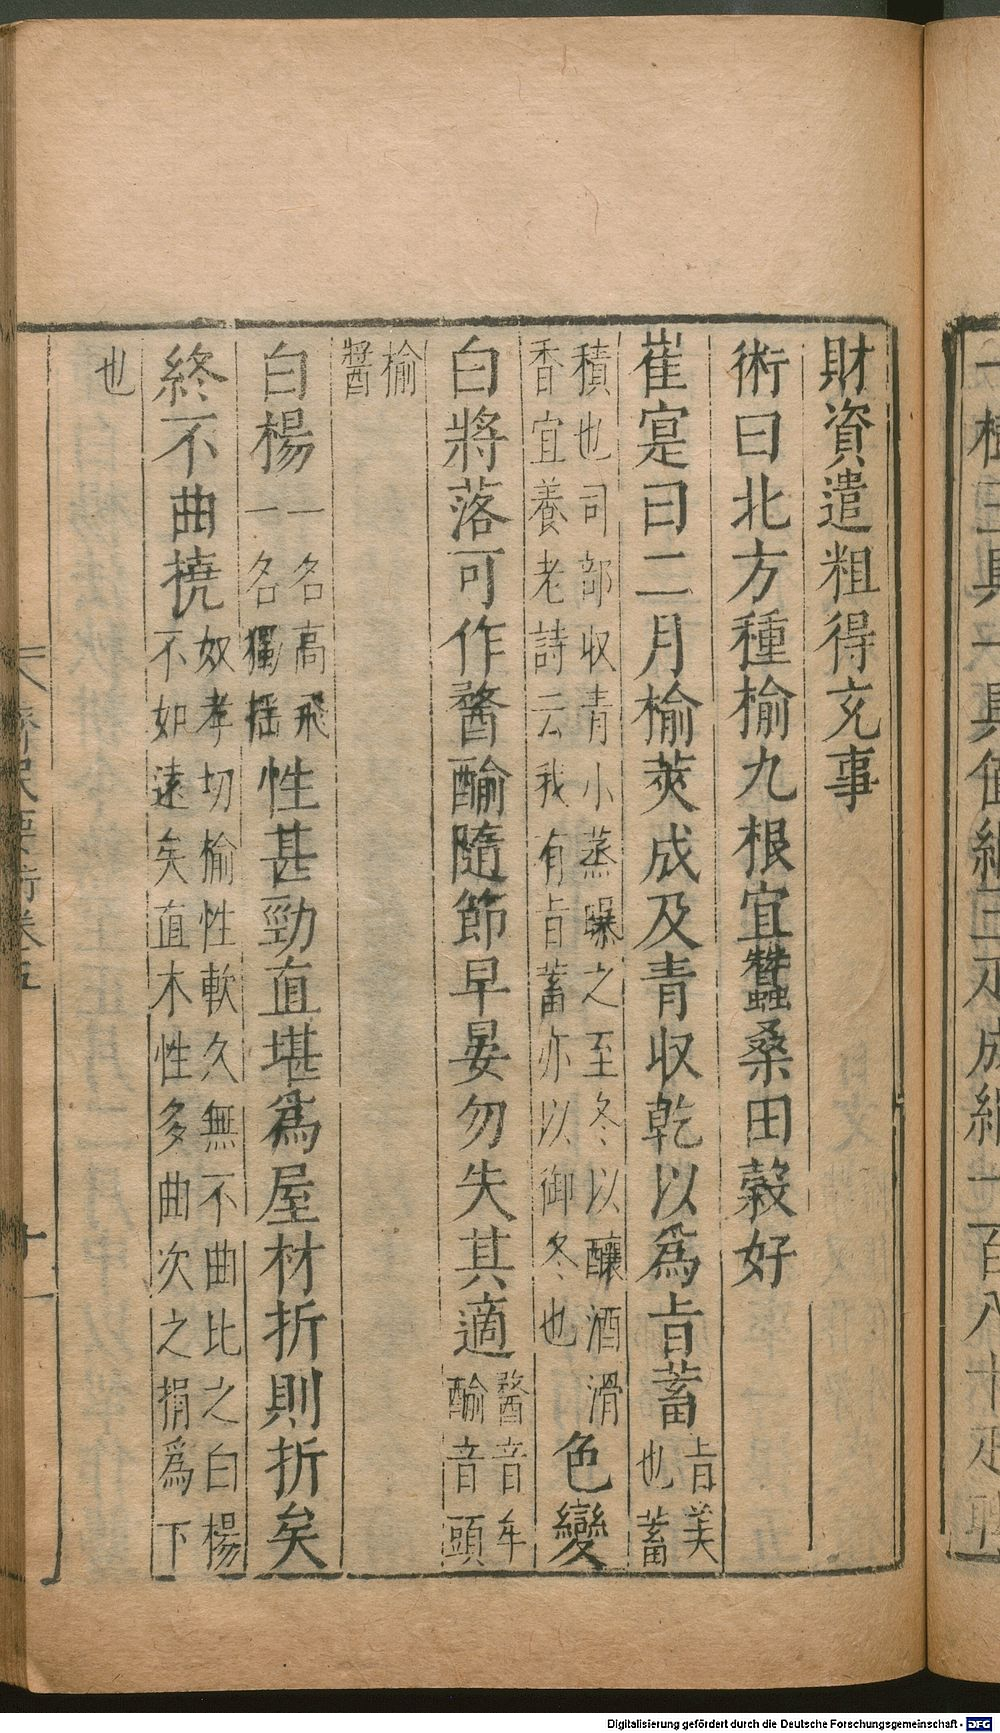 財資遣粗得充事
術曰北方種榆九根宜蠶桑田穀好
崔寔曰二月榆莢成及青収乾以爲旨蓄旨美也蓄
積也司部収青小蒸曝之至冬以釀酒滑香宜養老詩云我有旨蓄亦以御冬也色變
白將落可作䤅䤅隨節早晏勿失其適䤅音牟䤅音頭
榆醬
白楊一名高飛一名獨揺性甚勁直堪爲屋材折則折矣
終不曲撓奴孝切榆性軟久無不曲比之白楊不如遠矣直木性多曲次之捐爲下
也
齊民要術卷五
十一
Digitalisierung gefördert durch die Deutsche Forschungsgemeinschaft - DFG